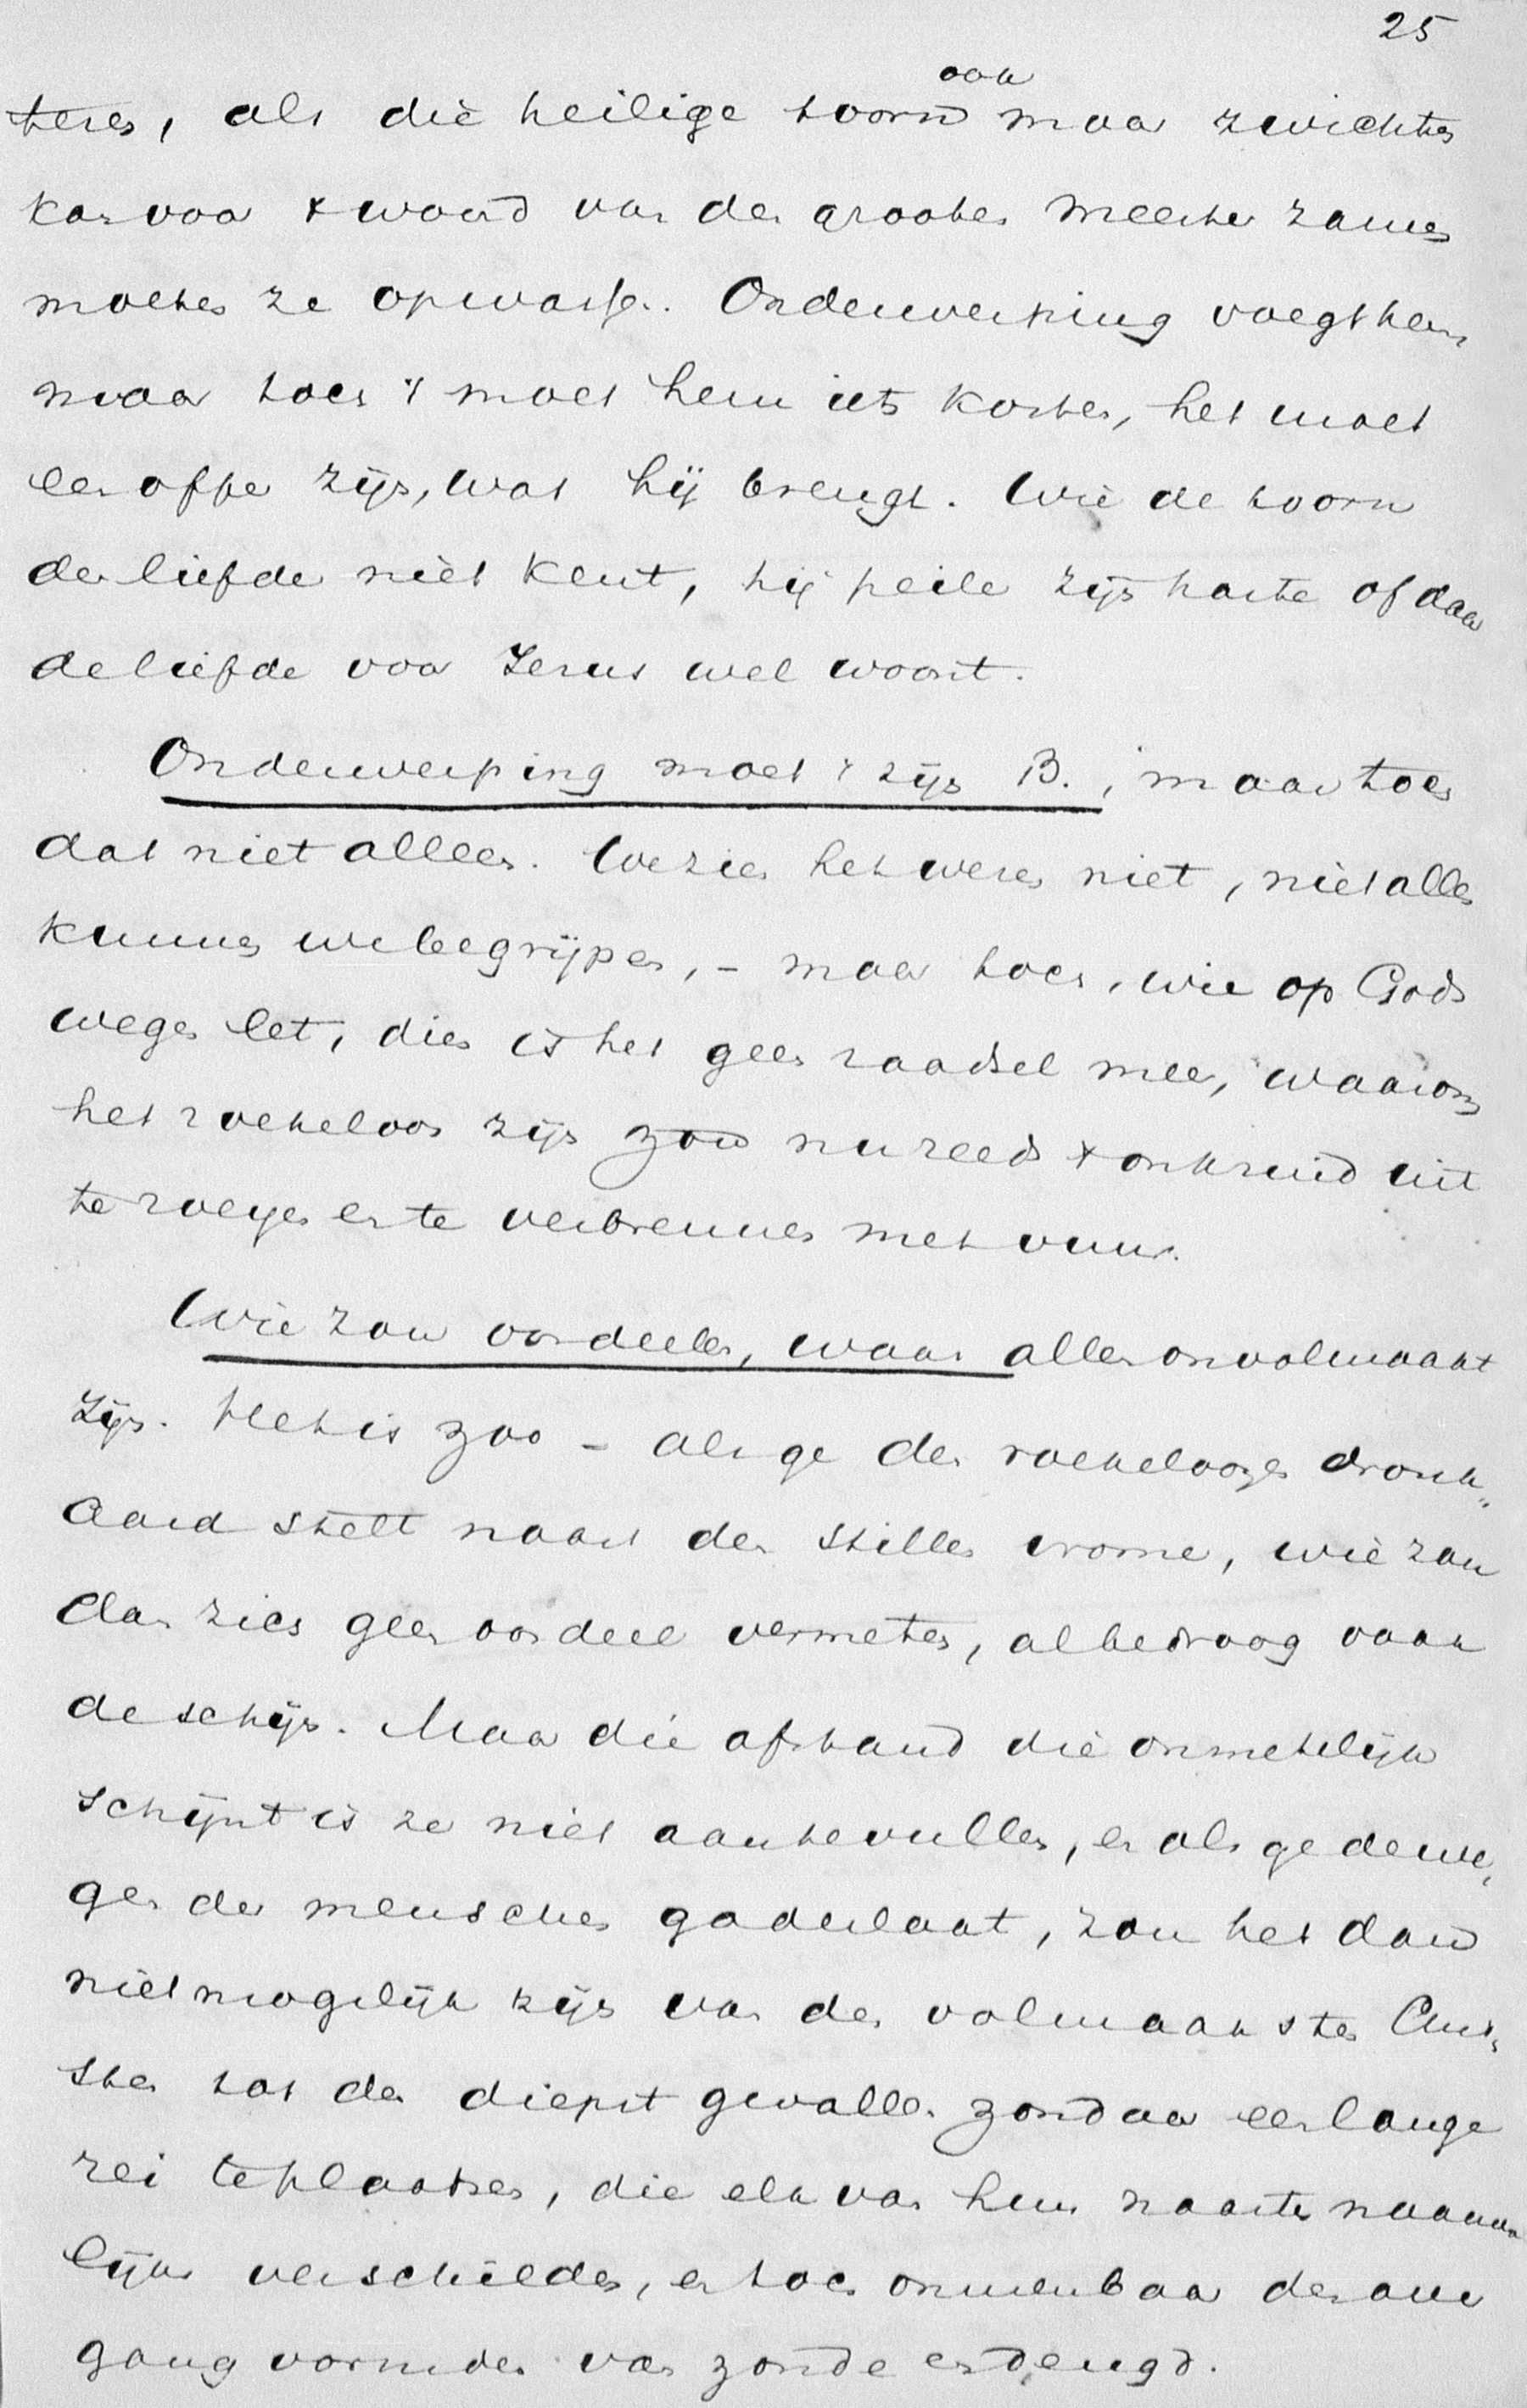 25
teren, als die heilige toorn ook maar zwichten
kon voor 't woord van den grooten Meester zamen
moeten ze opwassen. Onderwerping voegt hem
maar toch 't moet hem iets kosten, het moet
een offer zijn, wat hij brengt. Wie de toorn
der liefde niet kent, hij peile zijn harte of daar
de liefde voor Jezus wel woont.
Onderwerping moet 't zijn B., maar toch
dat niet alleen. We zien het wezen niet, niet alles
kunnen we begrijpen, - maar toch, wie op Gods
wegen let, dien is het geen raadsel meer, waarom
het roekeloos zijn zou nu reeds 't onkruid uit
te roeyen en te verbrennen met vuur.
Wie zou oordeelen, waar allen onvolmaakt
zijn. Het is zoo - als ge den roekeloozen dronk„
aard stelt naast den stillen vrome, wie zou
dan zich geen oordeel vermeten, al bedroog vaak
de schijn. Maar die afstand die onmetelijk
schijnt is ze niet aantevullen, en als ge de we„
gen der menschen gadeslaat, zou het dan
niet mogelijk zijn van den volmaaksten Chris„
ten tot den diepst gevallen zondaar een lange
rei te plaatsen, die elk van hun naasten nauwe„
lijks verschilden, en toch onmerkbaar den over
gang vormden van zonde en deugd.